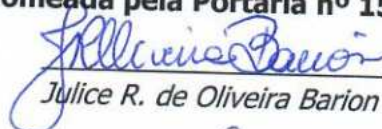 omeada pela Portaria nº 15
Julice R. de Oliveira Barion